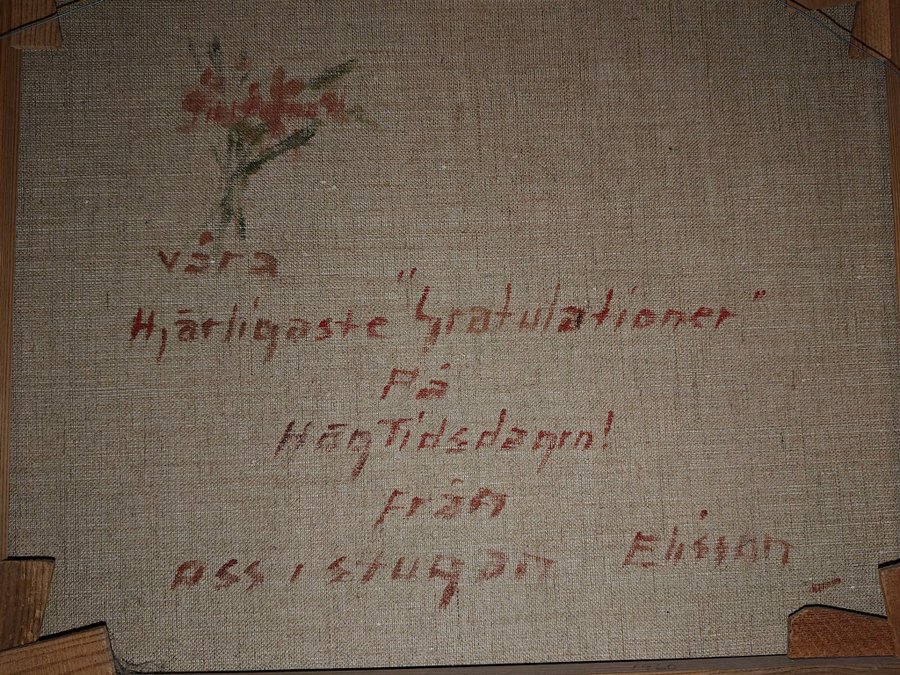 våra
Hjärtligaste "Gratulationer"
På
HögTidsdagen!
från
oss i stugan Elisson